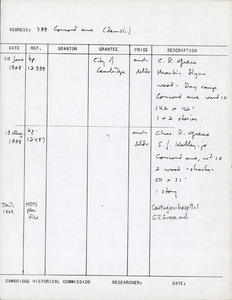 ADDRESS: 799 Concord ave (Demol.)
DATE REF. GRANTOR GRANTEE PRICE DESCRIPTION
10 June 1908 bp. 12399 City of Cambridge arch bldr C. R. Greco
Martin Flynn
wood - Day camp
Concord ave ward 10
142 x 42'
1 + 2 stories
19 Aug 1908 bp. 12487 arch bldr Chas. R. Greco
S. J. Kelley, jr
Concord ave, wd 10
2 wood - shacks -
50 x 31'
1 story
1909 MDPS plan file Contagious hospital
CR Greco, arch
CAMBRIDGE HISTORICAL COMMISSION RESEARCHER: DATE: